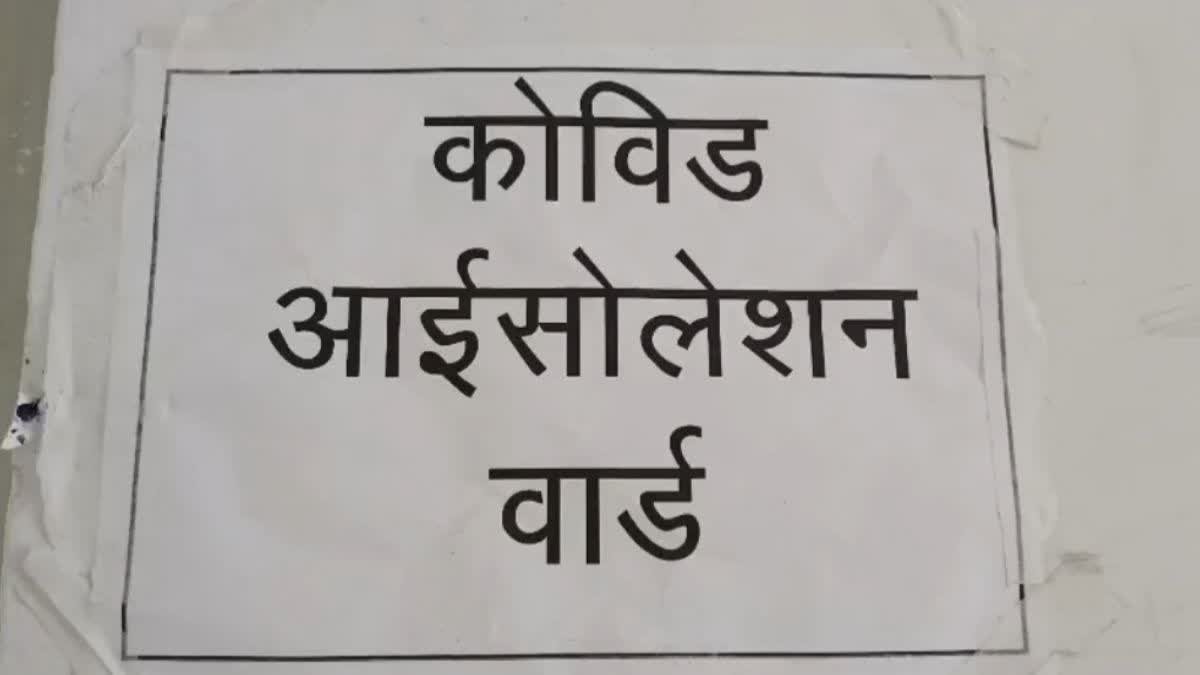 कोविड
आईसोलेशन
वार्ड